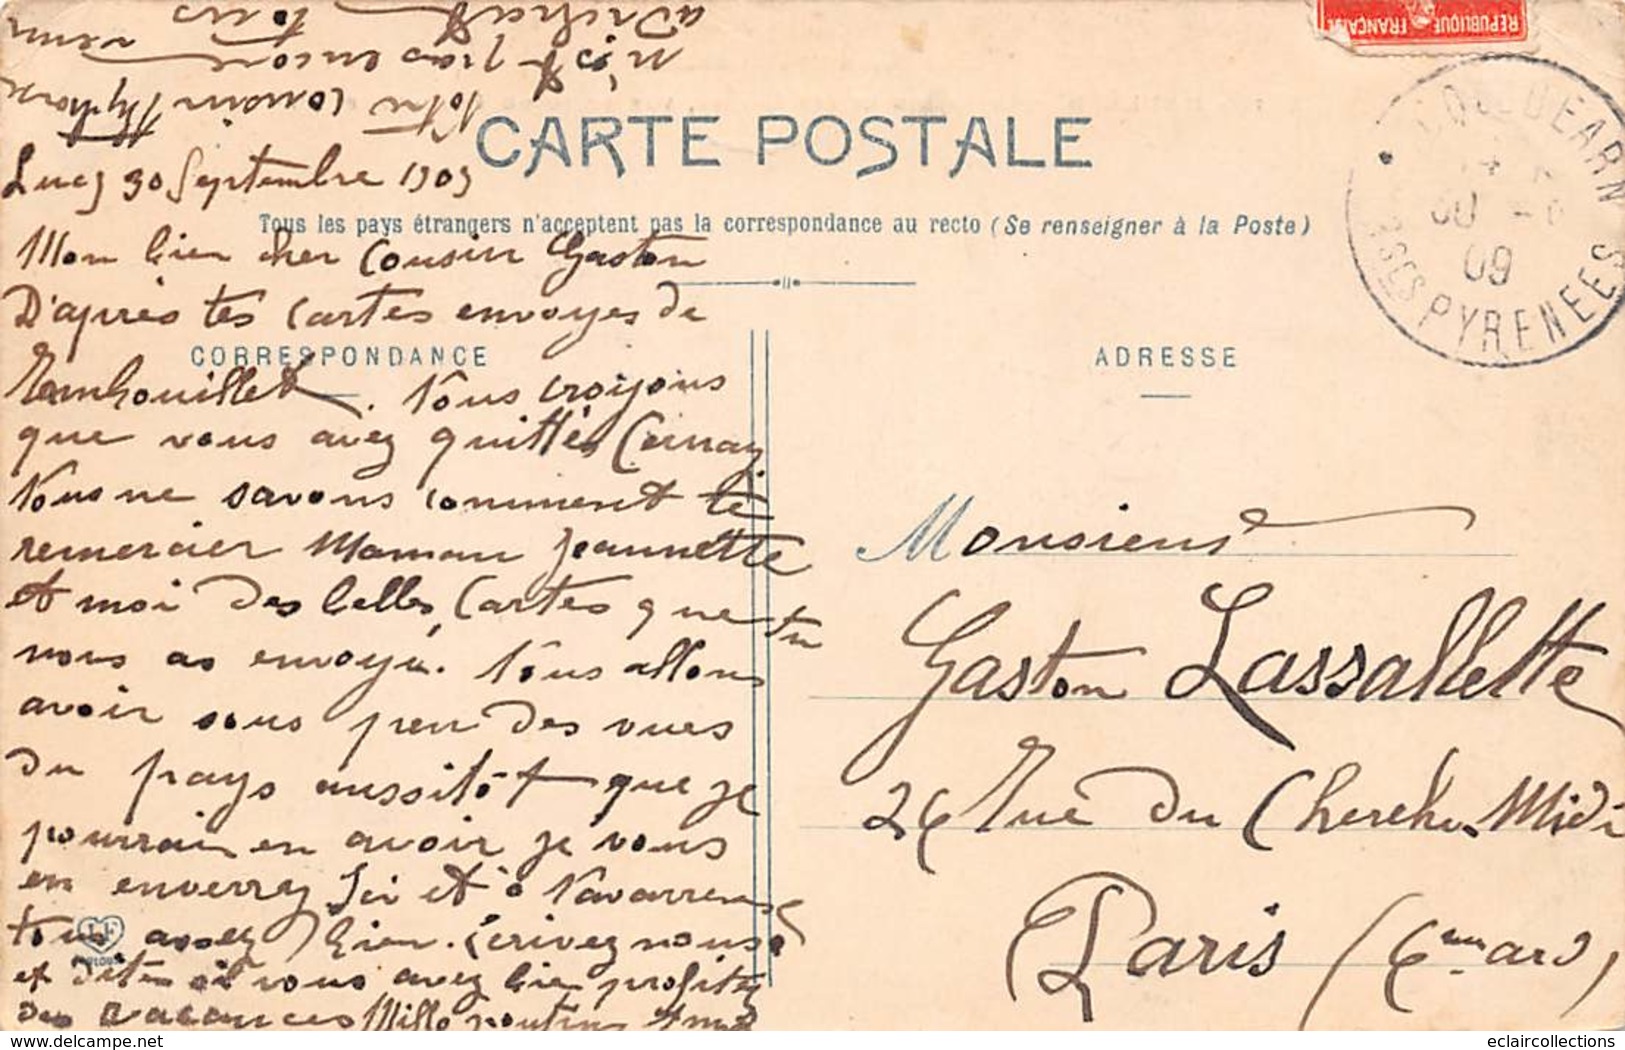 RÉPUBLIQUE FRANÇAISE
CARTE POSTALE
Tous les pays étrangers n'acceptent pas la correspondance au recto (Se renseigner à la Poste)
CORRESPONDANCE
ADRESSE
BEARN
30
09
PYRENEES
Lucq 30 Septembre 1909
Mon bien cher Cousin Gaston
D'après tes cartes envoyes de
Nous croyons
que vous avez quittés Cernay
Nous ne savons comment te
remercier Maman Jeannette
et moi des belles Cartes que tu
nous as envoyé. Nous allons
avoir sous peu des vues
du pays aussitôt que je
pourrai en avoir je vous
en enverrez Ici et à Navarrenx
tous assez bien. Écrivez nous
et dites si vous avez bien profitez
des vacances Mille
votre cousin
n'est pas encore venu
tous
Monsieur
Gaston Lassallette
26 Rue du Cherche-Midi
Paris (6eme ard)
www.delcampe.net
eclaircollections